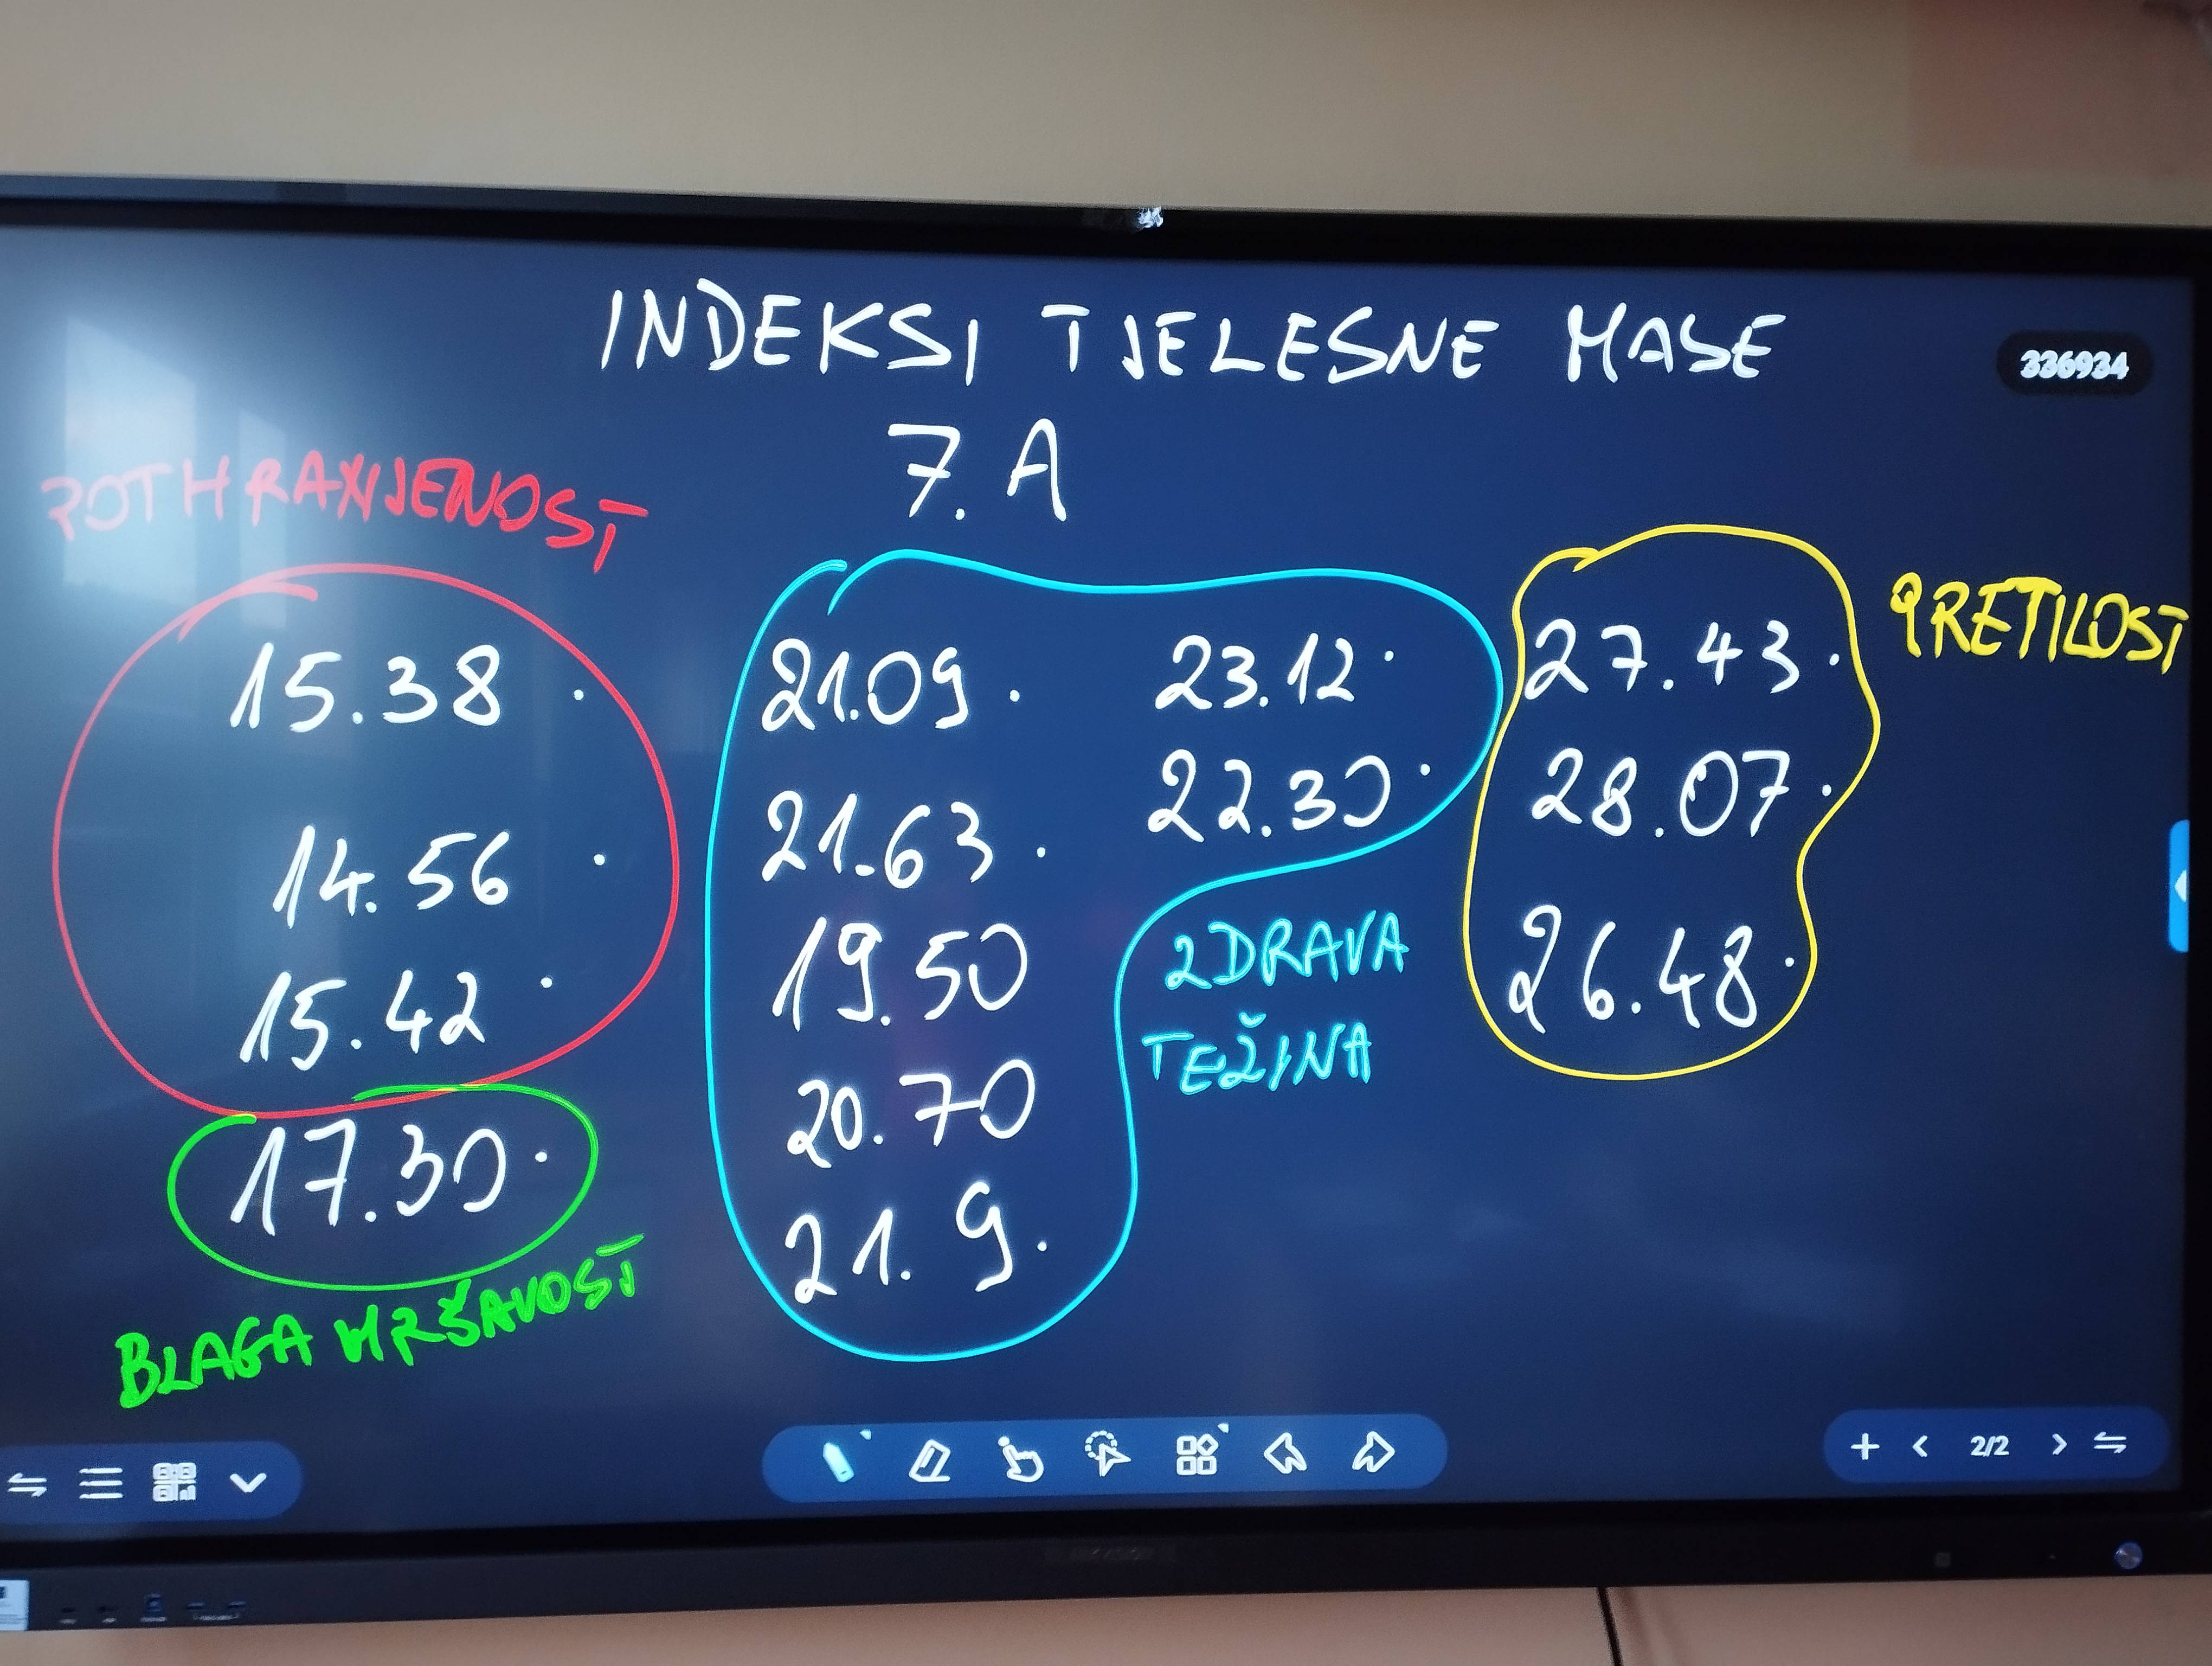 INDEKSI TJELESNE MASE
336934
7. A
POTHRANJENOST
15.38 .
14.56 .
15.42 .
17.30 .
BLAGA MRŠAVOST
21.09 .
21.63 .
19.50
20.70
21. 9 .
23.12 .
22.30 .
ZDRAVA
TEŽINA
27.43 .
28.07 .
26.48 .
PRETILOST
2/2